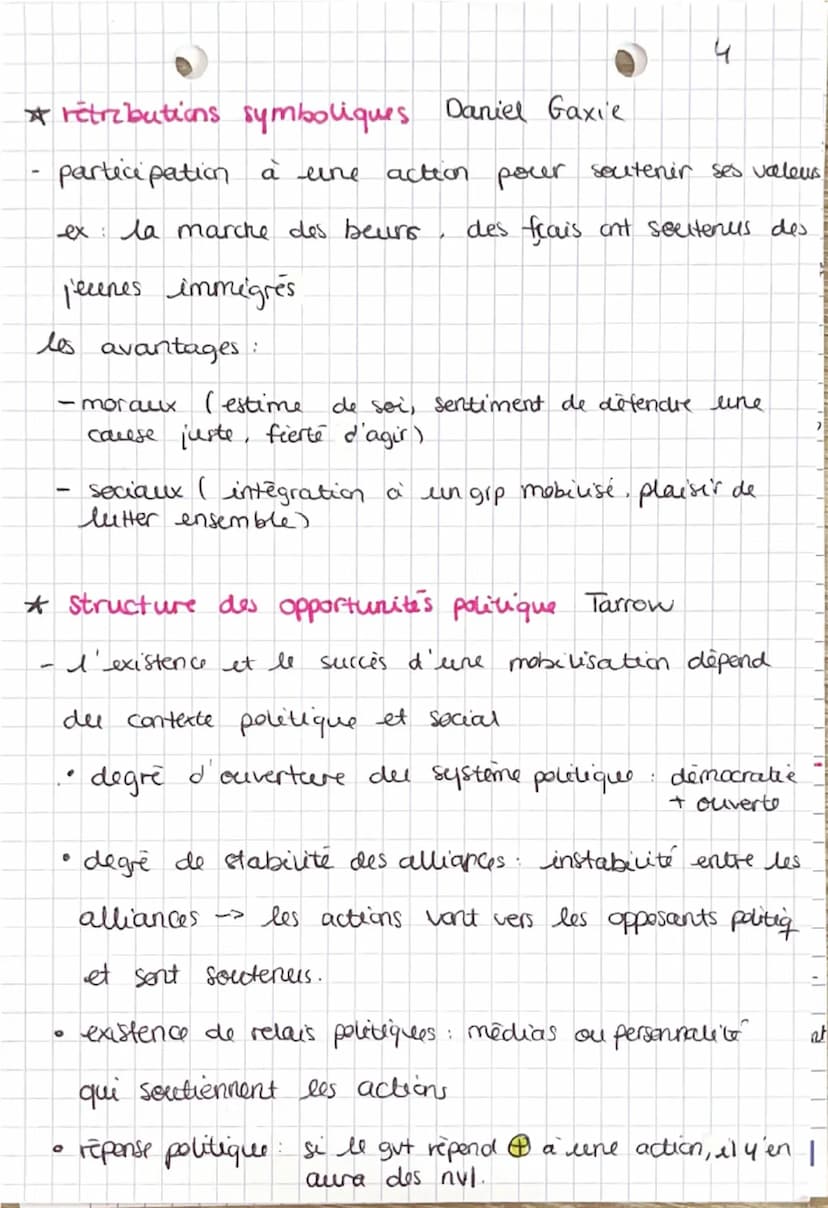 4
* rétributions symboliques Daniel Gaxie
- participation à une action pour soutenir ses valeurs
ex : la marche des beurs, des fçais ont soutenus des
jeunes immigrés
les avantages :
- moraux (estime de soi, sentiment de défendre une
cause juste, fierté d'agir)
- sociaux (intégration à un grp mobilisé, plaisir de
lutter ensemble)
* Structure des opportunités politique Tarrow
- l'existence et le succès d'une mobilisation dépend
du contexte politique et social
• degré d'ouverture du système politique : démocratie
+ ouverte
• degré de stabilité des alliances : instabilité entre les
alliances -> les actions vont vers les opposants politiq
et sont soutenus.
• existence de relais politiques : médias ou personnalité
qui soutiennent les actions
• réponse politique : si le gvt répend + à une action, il y'en
aura des nvl.